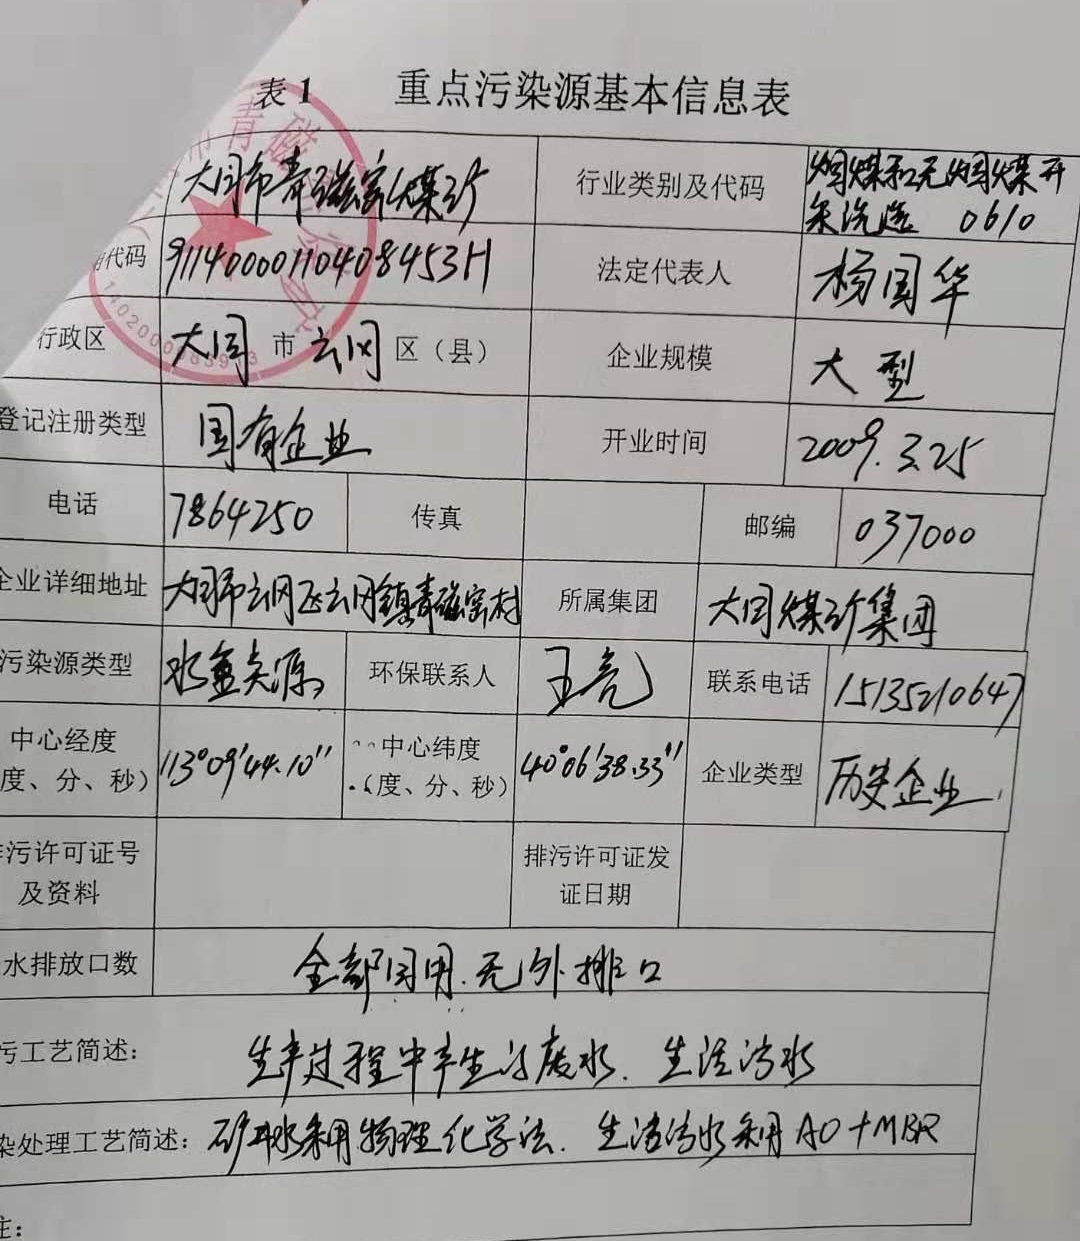 表1 重点污染源基本信息表
大同市青磁窑煤矿 行业类别及代码 烟煤和无烟煤开
采洗选 0610
代码 91140000110408453H 法定代表人 杨国华
行政区 大同 市 云冈 区（县） 企业规模 大型
登记注册类型 国有企业 开业时间 2009.3.25
电话 7864250 传真 邮编 037000
企业详细地址 大同市云冈区云冈镇青磁窑村 所属集团 大同煤矿集团
污染源类型 水重点源 环保联系人 王亮 联系电话 15135210647
中心经度 中心纬度
度、分、秒） 113°09'44.10" （度、分、秒） 40°06'38.33" 企业类型 历史企业
污许可证号 排污许可证发
及资料 证日期
水排放口数 全部回用.无外排口
污工艺简述： 生产过程中产生污废水、生活污水
染处理工艺简述： 矿井水采用物理化学法、生活污水采用AO+MBR
注：